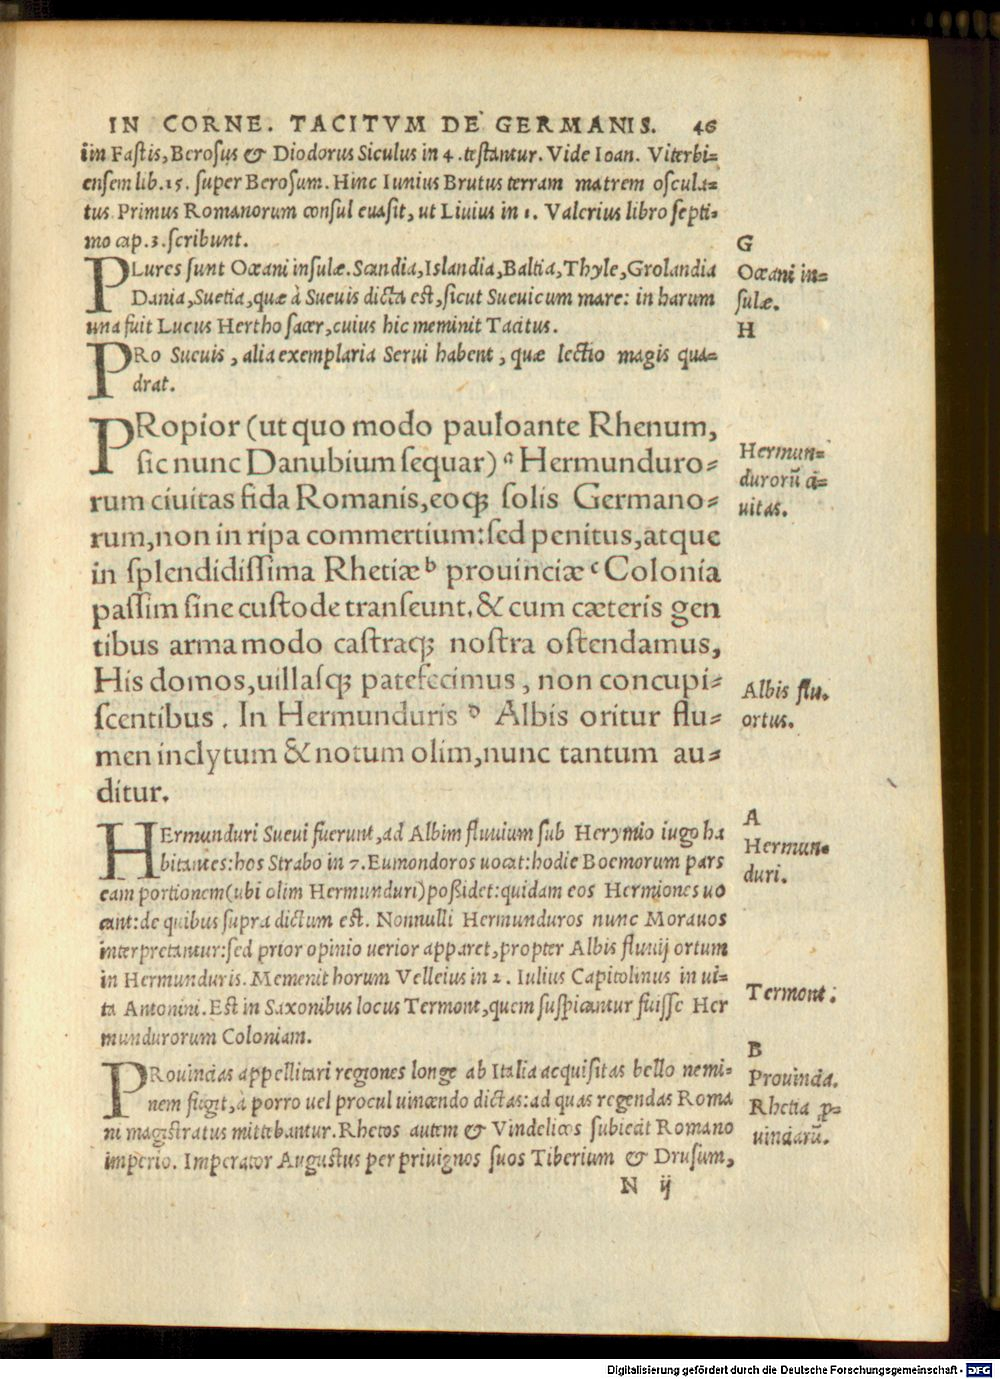 IN CORNE. TACITVM DE GERMANIS. 46
iim Fastis, Berosus & Diodorus Siculus in 4. testantur. Vide Ioan. Viterbi=
ensem lib. 15. super Berosum. Hinc Iunius Brutus terram matrem oscula=
tus. Primus Romanorum consul euasit, ut Liuius in 1. Valerius libro septi=
mo cap. 3. scribunt.
G
PLures sunt Oceani insulæ. Scandia, Islandia, Baltia, Thyle, Grolandia
Oceani in=
Dania, Suetia, quæ à Sueuis dicta est, sicut Sueuicum mare: in harum
sulæ.
una fuit Lucus Hertho sacer, cuius hic meminit Tacitus.
H
PRo Sueuis, alia exemplaria Serui habent, quæ lectio magis qua=
drat.
PRopior (ut quo modo pauloante Rhenum,
sic nunc Danubium sequar) ᵃ Hermunduro=
rum ciuitas fida Romanis, eoq; solis Germano=
Hermun=
durorũ ci=
uitas.
rum, non in ripa commertium: sed penitus, atque
in splendidissima Rhetiæ ᵇ prouinciæ ᶜ Colonia
passim sine custode transeunt. & cum cæteris gen
tibus arma modo castraq; nostra ostendamus,
His domos, uillasq; patefecimus, non concupi=
scentibus. In Hermunduris ᴰ Albis oritur flu=
Albis flu.
ortus.
men inclytum & notum olim, nunc tantum au=
ditur.
A
HErmunduri Sueui fuerunt, ad Albim fluuium sub Herynio iugo ha
Hermun=
bitantes: hos Strabo in 7. Eumondoros uocat: hodie Boemorum pars
duri.
eam portionem (ubi olim Hermunduri) poßidet: quidam eos Hermiones uo
cant: de quibus supra dictum est. Nonnulli Hermunduros nunc Morauos
interpretantur: sed prior opinio uerior apparet, propter Albis fluuij ortum
in Hermunduris. Meminit horum Velleius in 2. Iulius Capitolinus in ui=
ta Antonini. Est in Saxonibus locus Termont, quem suspicantur fuisse Her
Termont.
mundurorum Coloniam.
B
PRouincias appellitari regiones longe ab Italia acquisitas bello nemi=
Prouincia.
nem fugit, à porro uel procul uincendo dictas: ad quas regendas Roma
Rhetia ꝓ=
ni magistratus mittebantur. Rhetos autem & Vindelicos subiecit Romano
uinciarũ.
imperio. Imperator Augustus per priuignos suos Tiberium & Drusum,
N ij
Digitalisierung gefördert durch die Deutsche Forschungsgemeinschaft - DFG